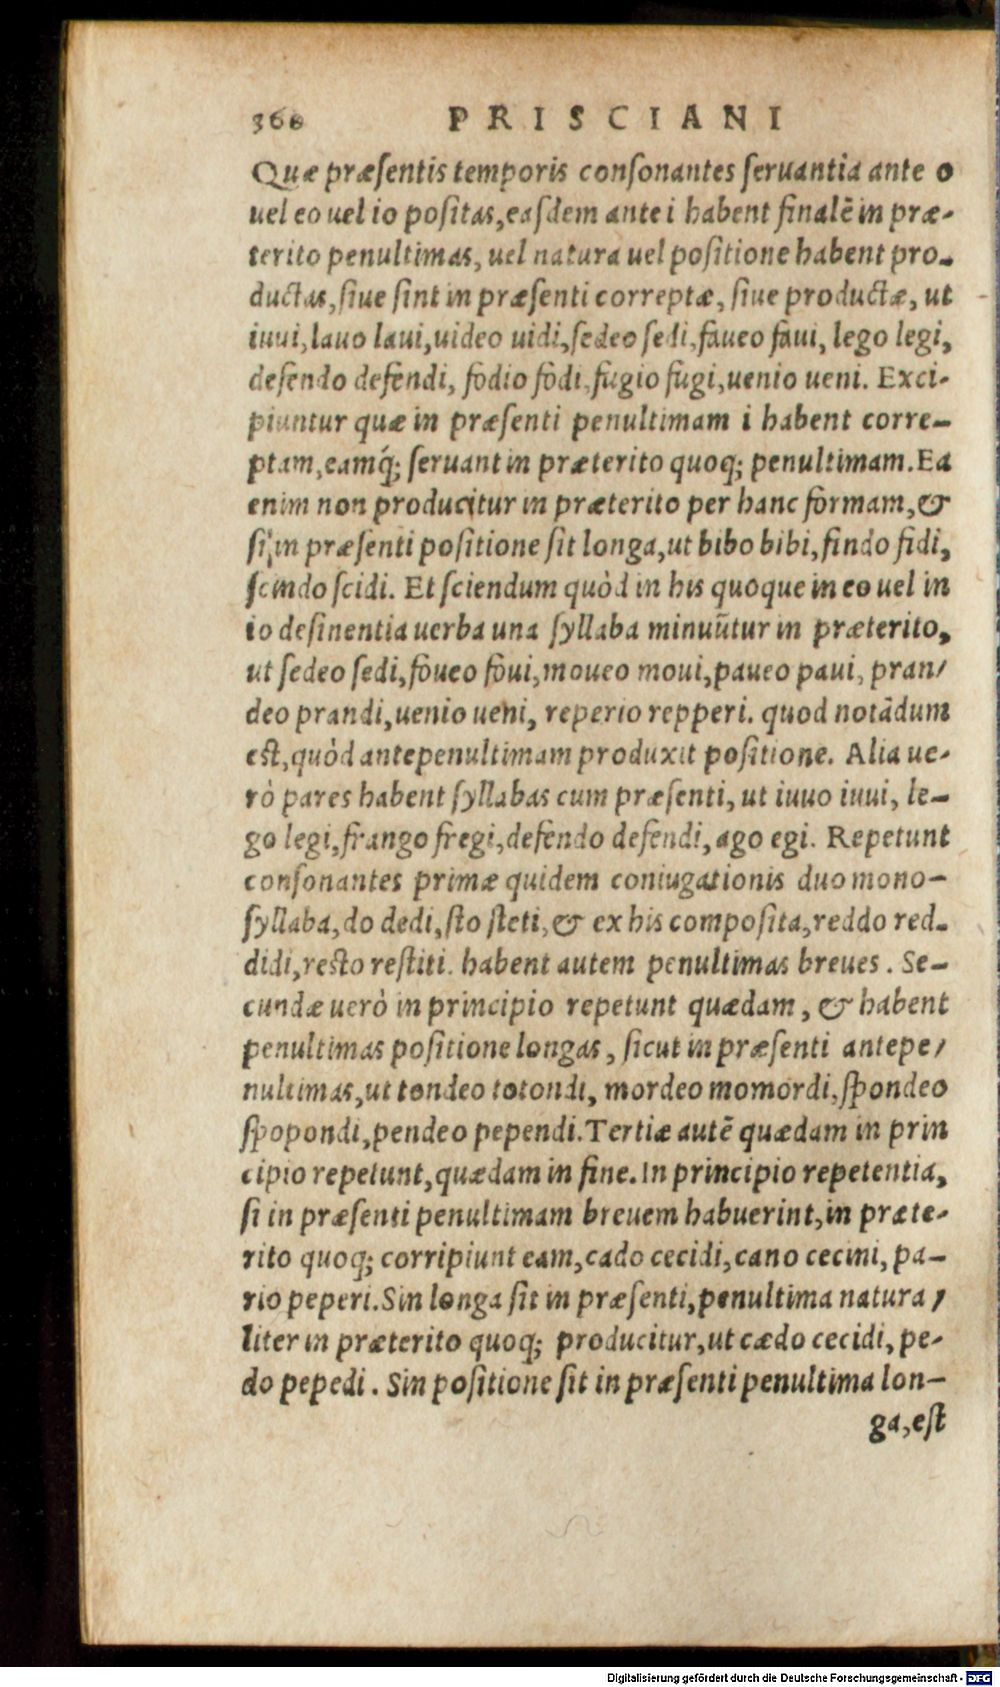 360 PRISCIANI
Quæ præſentis temporis conſonantes ſeruantia ante o
uel eo uel io poſitas, eaſdem ante i habent finalē in præ-
terito penultimas, uel natura uel poſitione habent pro-
ductas, ſiue ſint in præſenti correptæ, ſiue productæ, ut
iuui, lauo laui, uideo uidi, ſedeo ſedi, faueo faui, lego legi,
defendo defendi, fodio fodi, fugio fugi, uenio ueni. Exci-
piuntur quæ in præſenti penultimam i habent corre-
ptam, eamq́; ſeruant in præterito quoq; penultimam. Ea
enim non producitur in præterito per hanc formam, &
ſi in præſenti poſitione ſit longa, ut bibo bibi, findo fidi,
ſcindo ſcidi. Et ſciendum quòd in his quoque in eo uel in
io deſinentia uerba una ſyllaba minuūtur in præterito,
ut ſedeo ſedi, foueo foui, moueo moui, paueo paui, pran/
deo prandi, uenio ueni, reperio repperi. quod notādum
eſt, quòd antepenultimam produxit poſitione. Alia ue-
rò pares habent ſyllabas cum præſenti, ut iuuo iuui, le-
go legi, frango fregi, defendo defendi, ago egi. Repetunt
conſonantes primæ quidem coniugationis duo mono-
ſyllaba, do dedi, ſto ſteti, & ex his compoſita, reddo red-
didi, reſto reſtiti. habent autem penultimas breues. Se-
cundæ uerò in principio repetunt quædam, & habent
penultimas poſitione longas, ſicut in præſenti antepe/
nultimas, ut tondeo totondi, mordeo momordi, ſpondeo
ſpopondi, pendeo pependi. Tertiæ autē quædam in prin
cipio repetunt, quædam in fine. In principio repetentia,
ſi in præſenti penultimam breuem habuerint, in præte-
rito quoq; corripiunt eam, cado cecidi, cano cecini, pa-
rio peperi. Sin longa ſit in præſenti, penultima natura/
liter in præterito quoq; producitur, ut cædo cecidi, pe-
do pepedi. Sin poſitione ſit in præſenti penultima lon-
ga, eſt
Digitalisierung gefördert durch die Deutsche Forschungsgemeinschaft - DFG